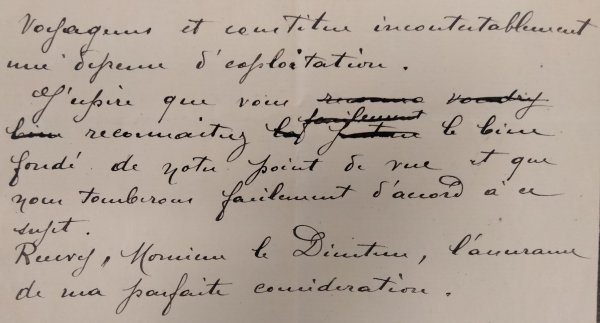 Voyageurs et constitue incontestablement
une dépense d'exploitation.
J'espère que vous voudrez
bien reconnaitrez facilement le bien
fondé de notre point de vue et que
nous tomberons facilement d'accord à ce
sujet.
Recevez, Monsieur le Directeur, l'assurance
de ma parfaite considération.